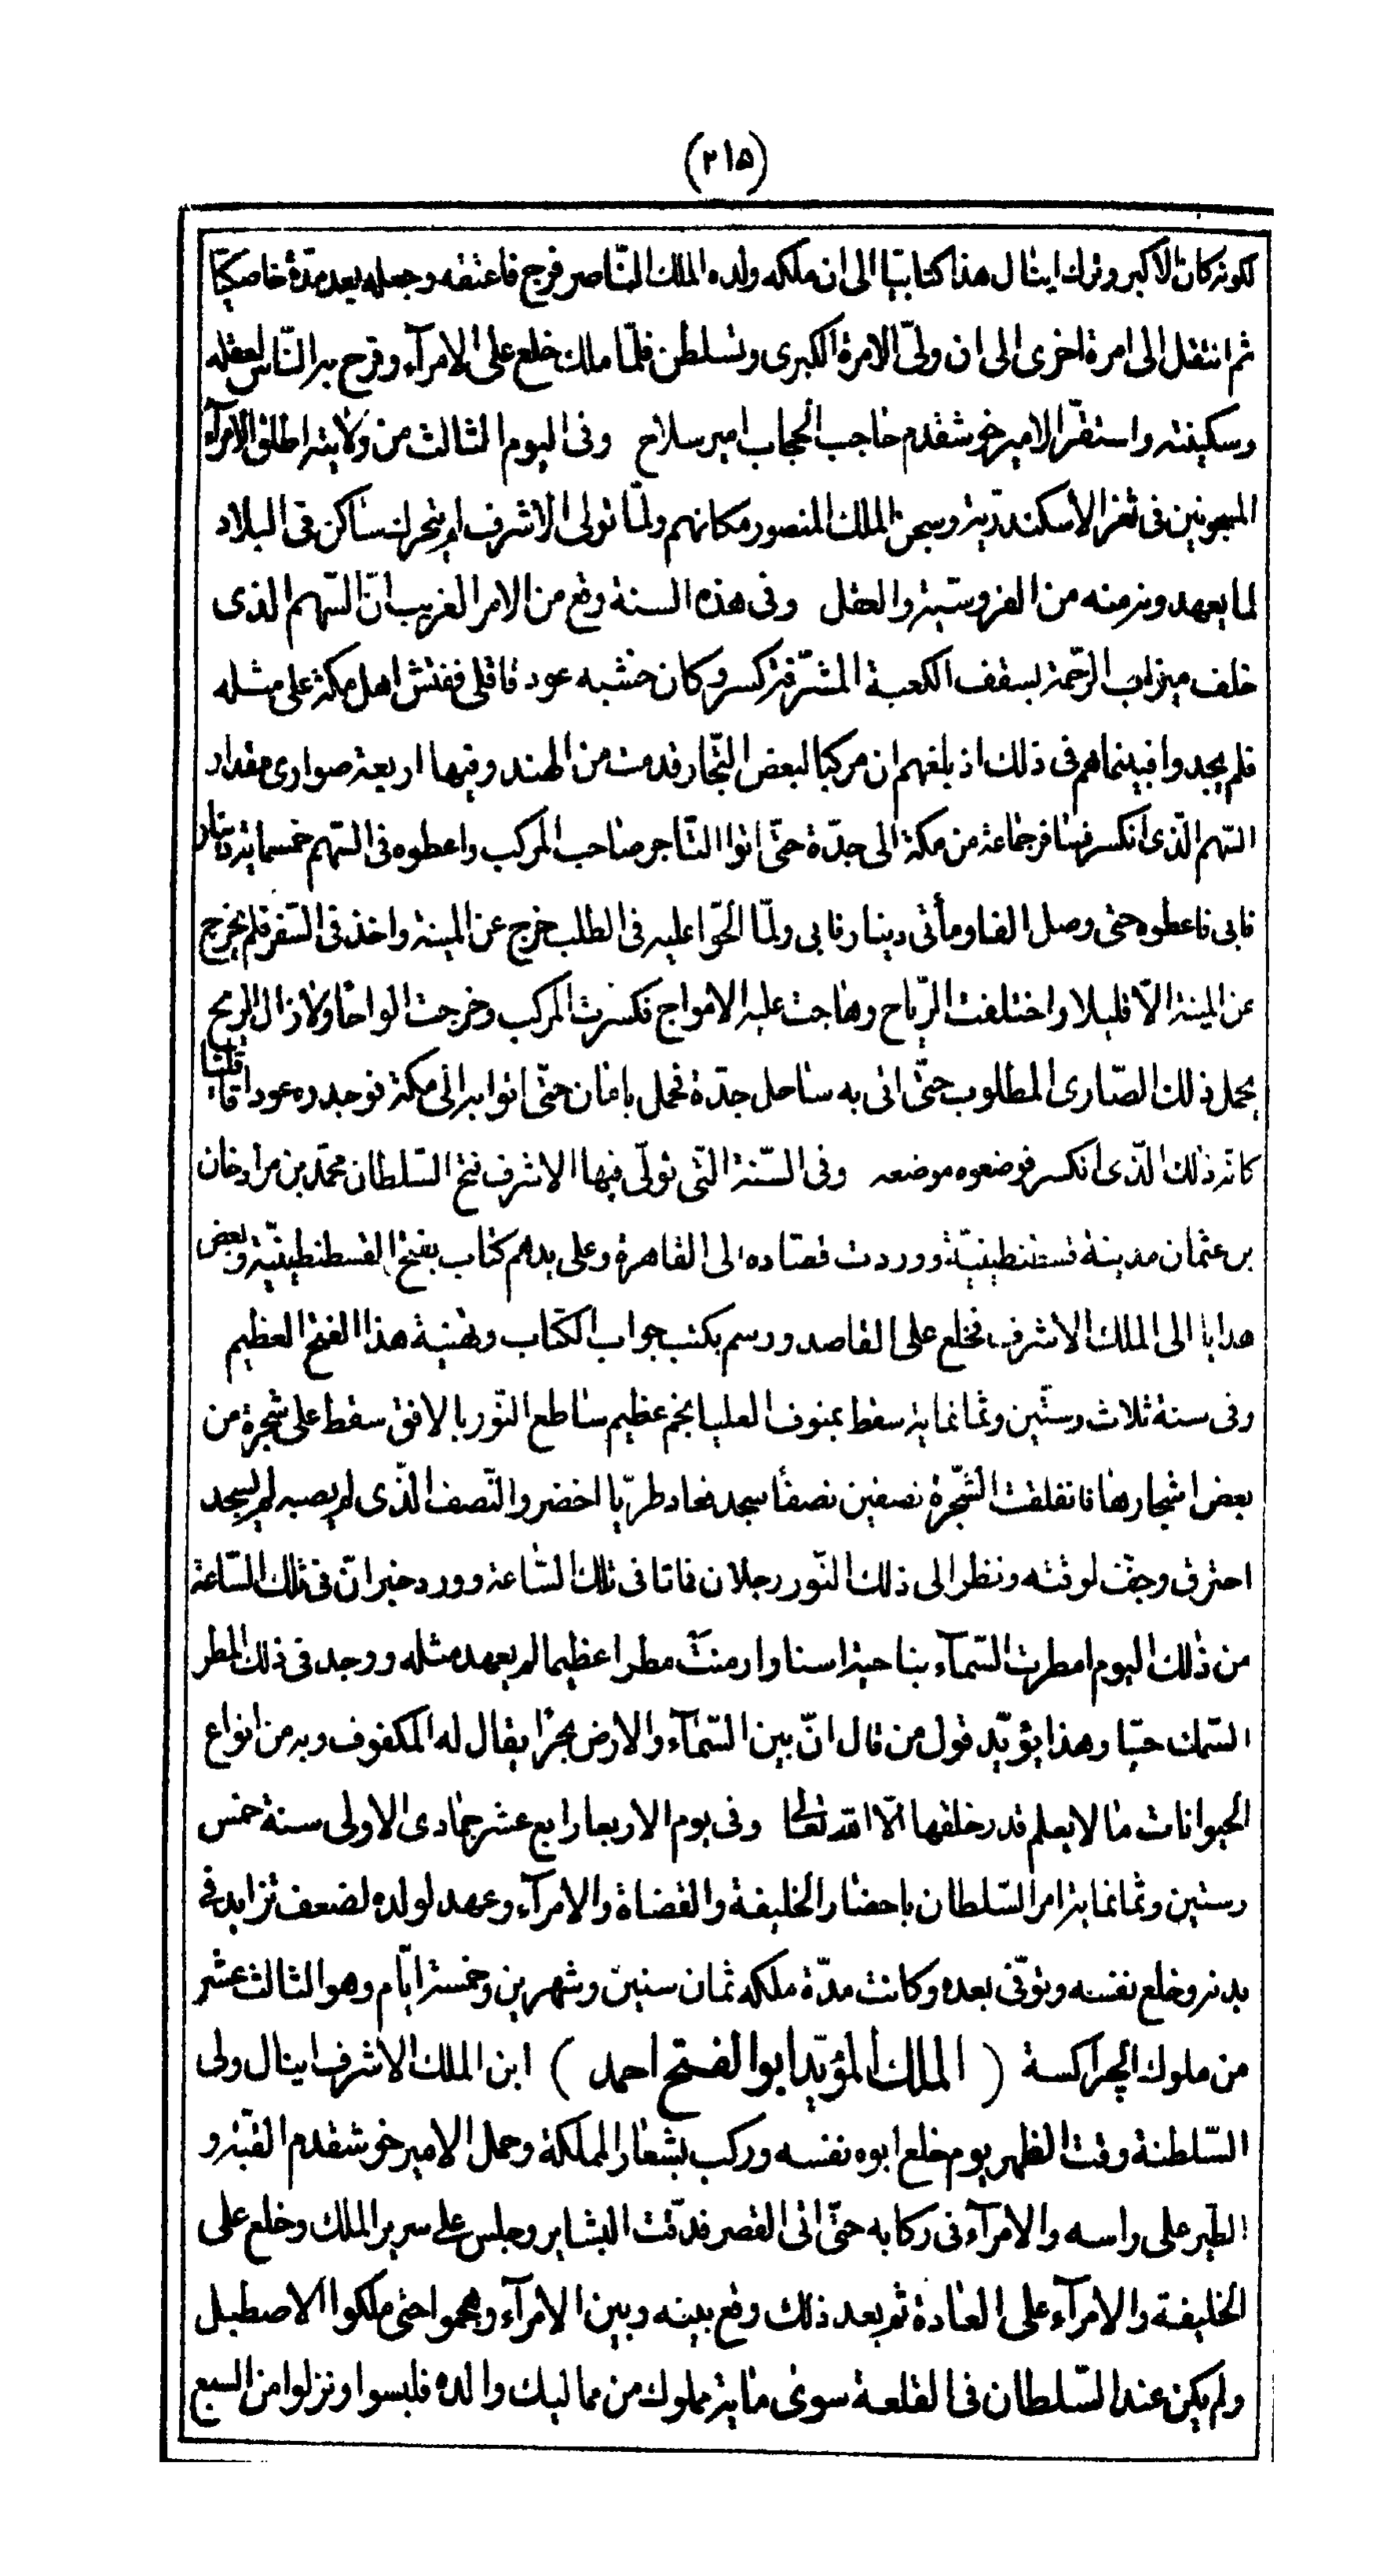 (٢١٥)
لكونه كان الاكبر وترك اينال هذا كتابيّا الى ان ملكه ولده الملك النّاصر فرج فاعتقه وجعله بعد مدّة خاصكيّا
ثم انتقل الى امرة اخرى الى ان ولىّ الامرة الكبرى وتسلطن فلمّا ملك خلع على الامرآء وفرح به النّاس لعقله
وسكينته واستقرّ الامير خوشقدم حاجب الحجاب امير سلاح وفى اليوم الثالث من ولايته اطلق الامرآء
المسجونين فى ثغر الأسكندريّة وسجن الملك المنصور مكانهم ولمّا تولى الاشرف لم يتحرك ساكن فى البلاد
لما يعهدونه منه من الفروسيّة والعقل وفى هذه السنة وقع من الامر الغريب انّ السّهم الذى
خلف ميزاب الرّحمة بسقف الكعبة المشرّفة كسر وكان خشبه عود قاقلى ففتش اهل مكة على مثله
فلم يجدوا فبينماهم فى ذلك اذ بلغهم ان مركبا لبعض التّجار قدمت من الهند وفيها اربعة صوارى مقدار
السّهم الّذى انكسر فسافر جماعة من مكة الى جدّة حتّى اتوا التّاجر صاحب المركب واعطوه فى السّهم خمسماية دينار
فابى فاعطوه حتى وصل الفا ومأتى دينار فابى ولمّا الحّوا عليه فى الطلب خرج عن المينة واخذ فى السّفر فلم يخرج
عن المينة الّا قليلا واختلفت الرّياح وهاجت عليه الامواج فكسرت المركب وخرجت الواحًا ولا زال الريح
يحمل ذلك الصّارى المطلوب حتّى اتى به ساحل جدّة فحمل بامان حتّى اتوا به الى مكة فوجدوه عودا قاقليّا
كانّه ذلك الّذى انكسر فوضعوه موضعه وفى السّنة الّتى تولّى فيها الاشرف فتح السّلطان محمّد بن مراد خان
بن عثمان مدينة قسطنطينيّة ووردت قصّاده الى القاهرة وعلى يدهم كتاب بفتح القسطنطينيّة وبعض
هدايا الى الملك الاشرف فخلع على القاصد ورسم بكتب جواب الكتاب وتهنية هذا الفتح العظيم
وفى سنة ثلاث وستّين وثمانماية سقط بمنوف العليا نجم عظيم ساطع النّور بالافق سقط على شجرة من
بعض اشجارها فانفلقت الشّجرة نصفين نصفًا سجد فعاد طريّا اخضر والنّصف الّذى لم يصبه لم يسجد
احترق وجفّ لوقته ونظر الى ذلك النّور رجلان فماتا فى تلك السّاعة وورد خبر انّ فى تلك السّاعة
من ذلك اليوم امطرت السّمآء بناحية اسنا وارمنت مطرا عظيما لم يعهد مثله ووجد فى ذلك المطر
السّمك حيّا وهذا يؤيّد قول من قال انّ بين السّمآء والارض بحرًا يقال له المكفوف وبه من انواع
الحيوانات ما لا يعلم قدر خلقها الّا الله تعالى وفى يوم الاربعا رابع عشر جمادى الاولى سنة خمس
وستين وثمانماية امر السّلطان باحضار الخليفة والقضاة والامرآء وعهد لولده لضعف تزايد فى
بدنه وخلع نفسه وتوفّى بعده وكانت مدّة ملكه ثمان سنين وشهرين وخمسة ايّام وهو الثالث عشر
من ملوك الچراكسة ( الملك المؤيّد ابو الفتح احمد ) ابن الملك الاشرف اينال ولى
السّلطنة وقت الظهر يوم خلع ابوه نفسه وركب بشعار المملكة وحمل الامير خوشقدم القبّة و
الطّير على راسه والامرآء فى ركابه حتّى اتى القصر فدقّت البشاير وجلس على سرير الملك وخلع على
الخليفة والامرآء على العادة ثم بعد ذلك وقع بينه وبين الامرآء وهجموا حتى ملكوا الاصطبل
ولم يكن عند السّلطان فى القلعة سوى ماية مملوك من مماليك والده فلبسوا ونزلوا من السبع